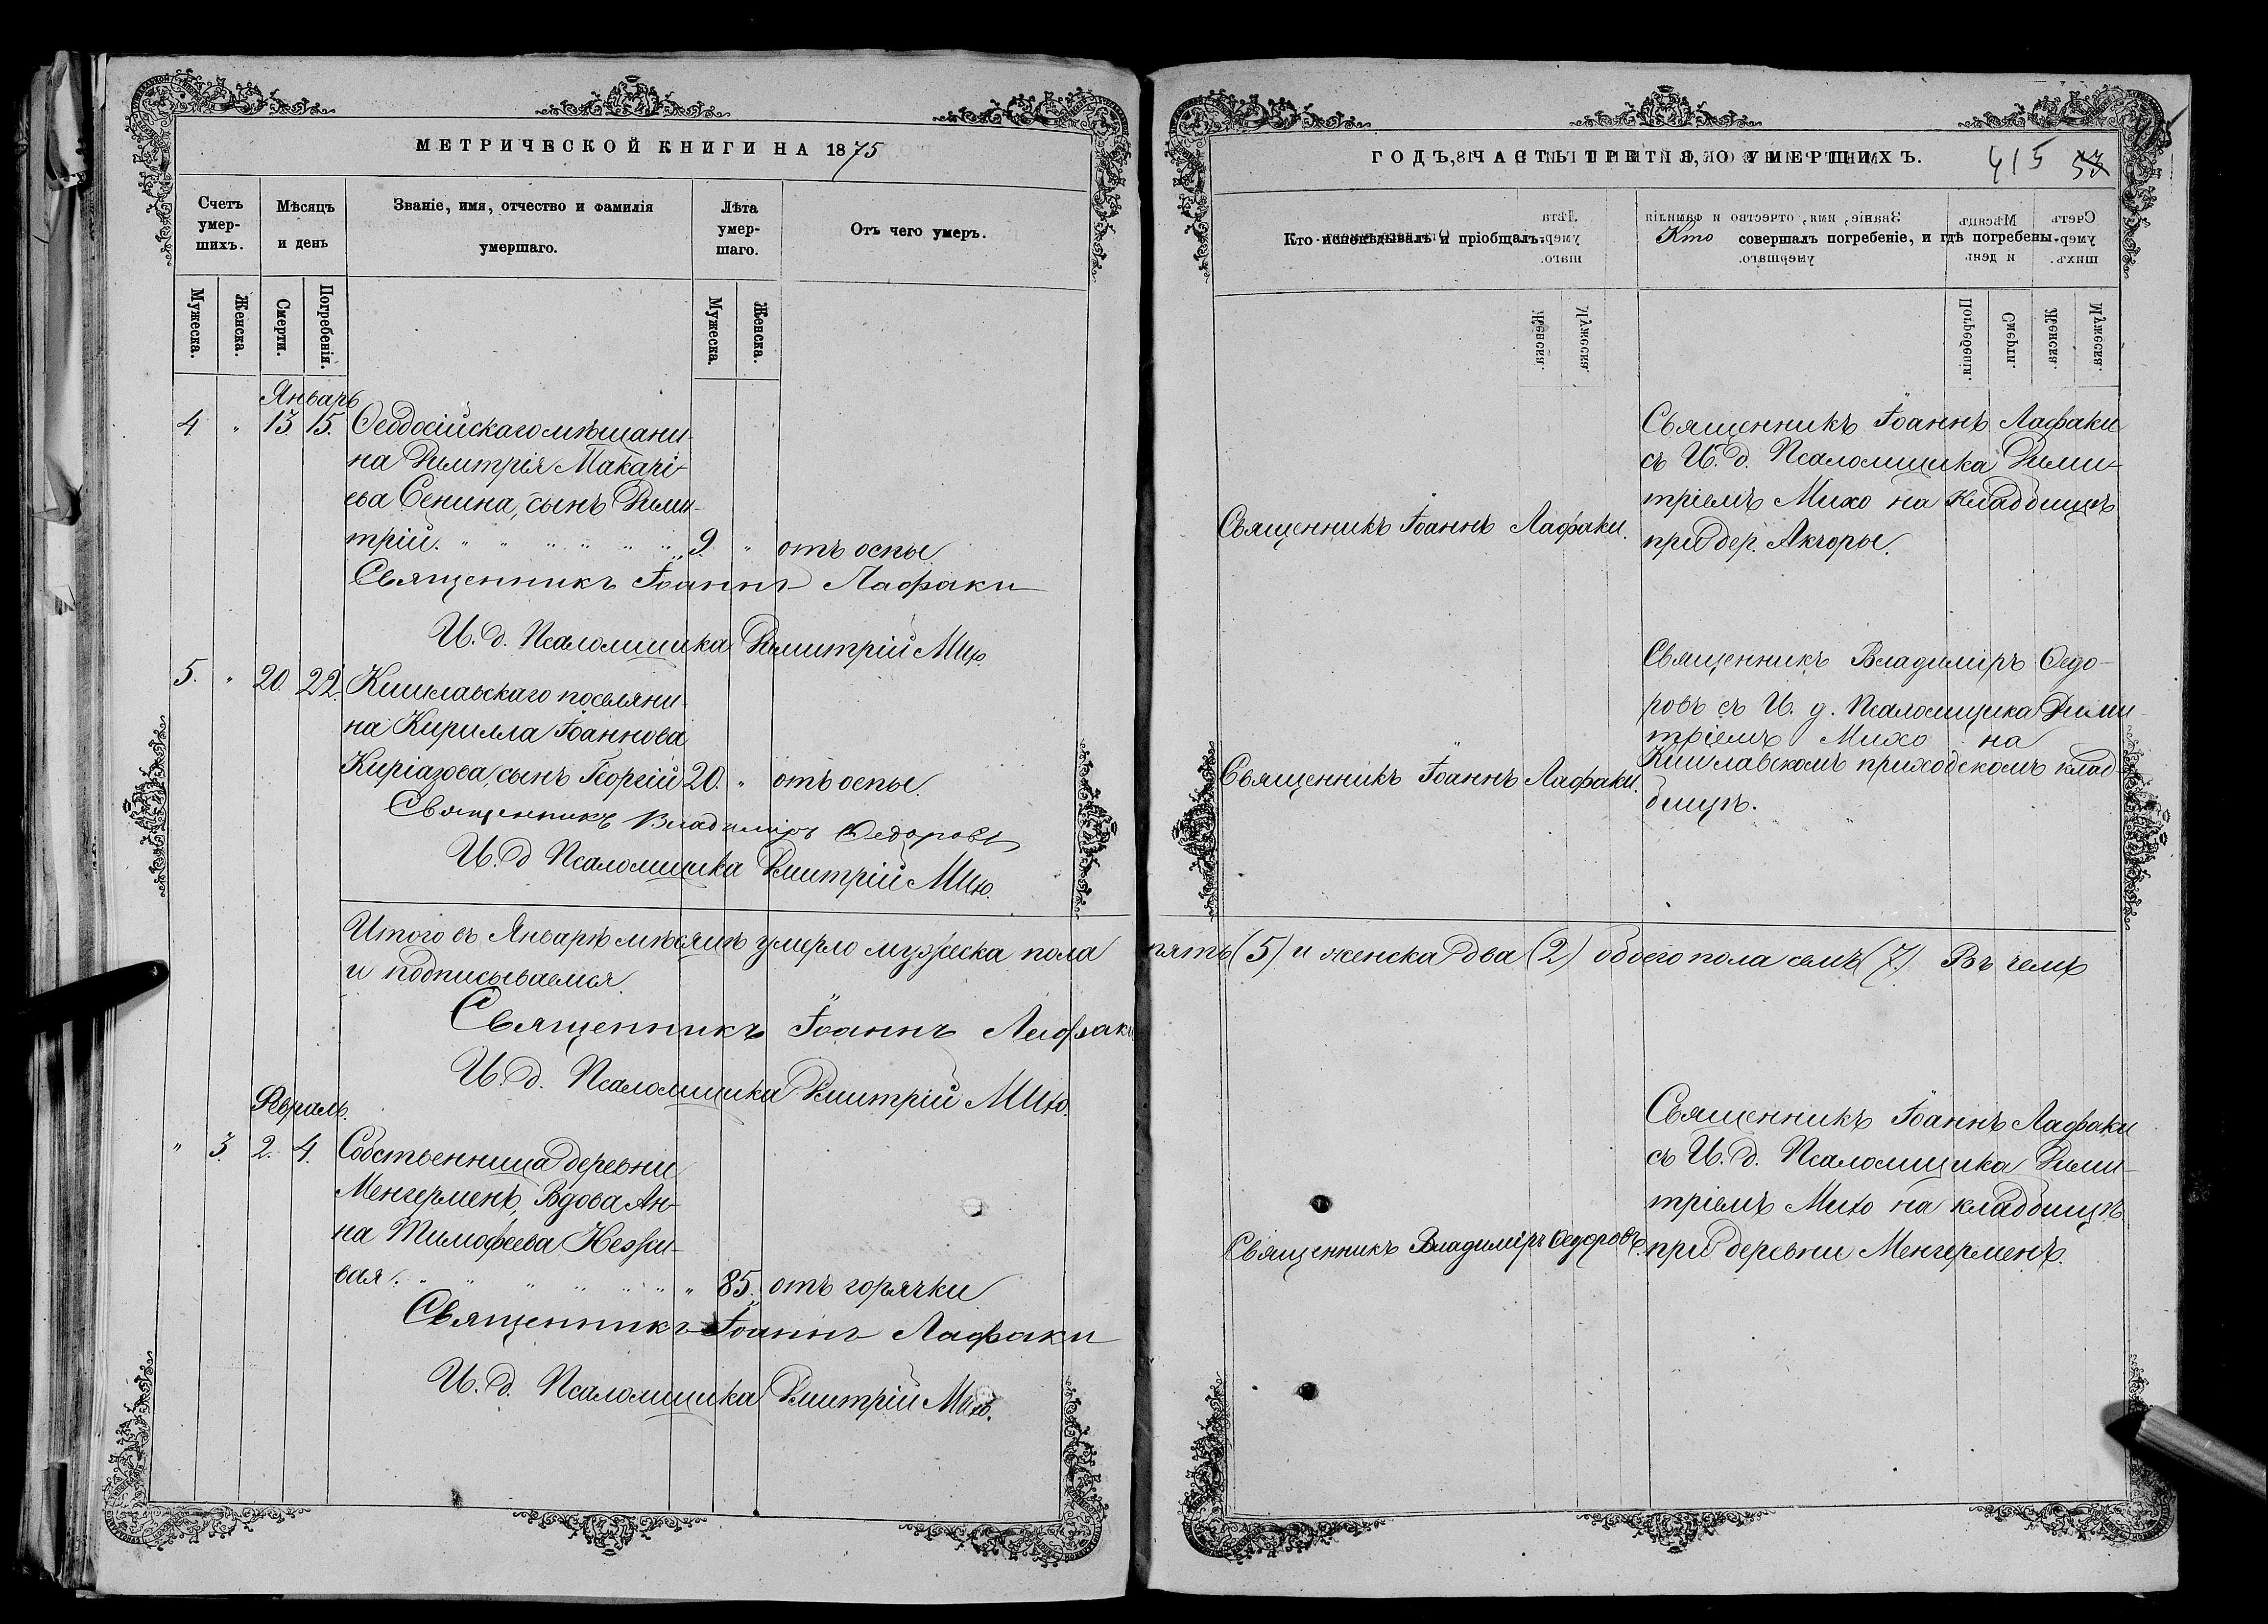 МЕТРИЧЕСКОЙ КНИГИ НА 1875
Счетъ умер-шихъ.
Мѣсяцъ и день
Званіе, имя, отчество и фамилія умершаго.
Лѣта умер-шаго.
Отъ чего умеръ.
Мужеска.
Женска.
Смерти.
Погребенія.
Мужеска.
Женска.
Январь
4. " 13. 15. Ѳеодосійскаго мѣщани-
на Димитрія Макарі-
ева Сенина, сынъ Дими-
трій. " " " " " " 9. " отъ оспы.
Священникъ Іоаннъ Лафаки
И. д. Псаломщика Димитрій Михо
5. " 20. 22. Кишлавскаго поселяни-
на Кирилла Іоаннова
Киріазова, сынъ Георгій 20. " отъ оспы.
Священникъ Владиміръ Ѳедоровъ
И. д. Псаломщика Димитрій Михо.
Итого въ Январѣ мѣсяцѣ умерло мужеска пола
и подписываемся.
Священникъ Іоаннъ Лафаки
И. д. Псаломщика Димитрій Михо.
Февраль.
" 3. 2. 4. Собственница деревни
Менгерменъ, Вдова Ан-
на Тимофеева
вая. " " " " " " 85. отъ горячки
Священникъ Іоаннъ Лафаки
И. д. Псаломщика Димитрій Михо.
ГОДЪ, ЧАСТЬ ТРЕТІЯ, О УМЕРШИХЪ.
415 53
Кто исповѣдывалъ и пріобщалъ.
Кто совершалъ погребеніе, и гдѣ погребены.
Священникъ Іоаннъ Лафаки.
Священникъ Іоаннъ Лафаки
съ И. д. Псаломщика Дими-
тріемъ Михо на кладбищѣ
при дер. Акчоры.
Священникъ Іоаннъ Лафаки.
Священникъ Владиміръ Ѳедо-
ровъ съ И. д. Псаломщика Дими-
тріемъ Михо на
Кишлавскомъ приходскомъ клад-
бищѣ.
пять (5) и женска два (2) обоего пола семь (7.) Въ чемъ
Священникъ Владиміръ Ѳедоровъ.
Священникъ Іоаннъ Лафаки
съ И. д. Псаломщика Дими-
тріемъ Михо на кладбищѣ
при деревни Менгерменъ.